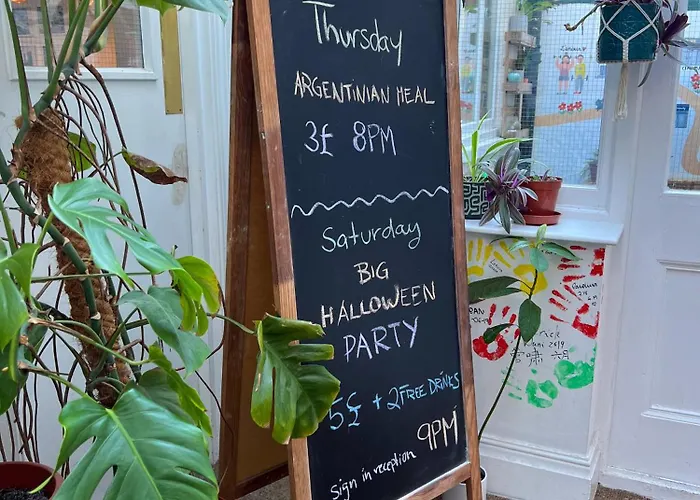 Thursday
ARGENTINIAN MEAL
3£ 8PM
Saturday
BIG
HALLOWEEN
PARTY
5£ + 2 FREE DRINKS
Sign in reception 9PM